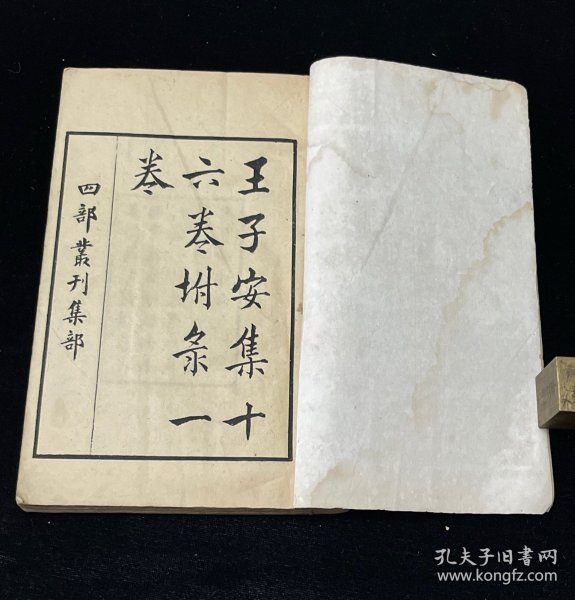 王子安集十
六卷坿录一
卷
四部叢刊集部
孔夫子旧书网
www.kongfz.com